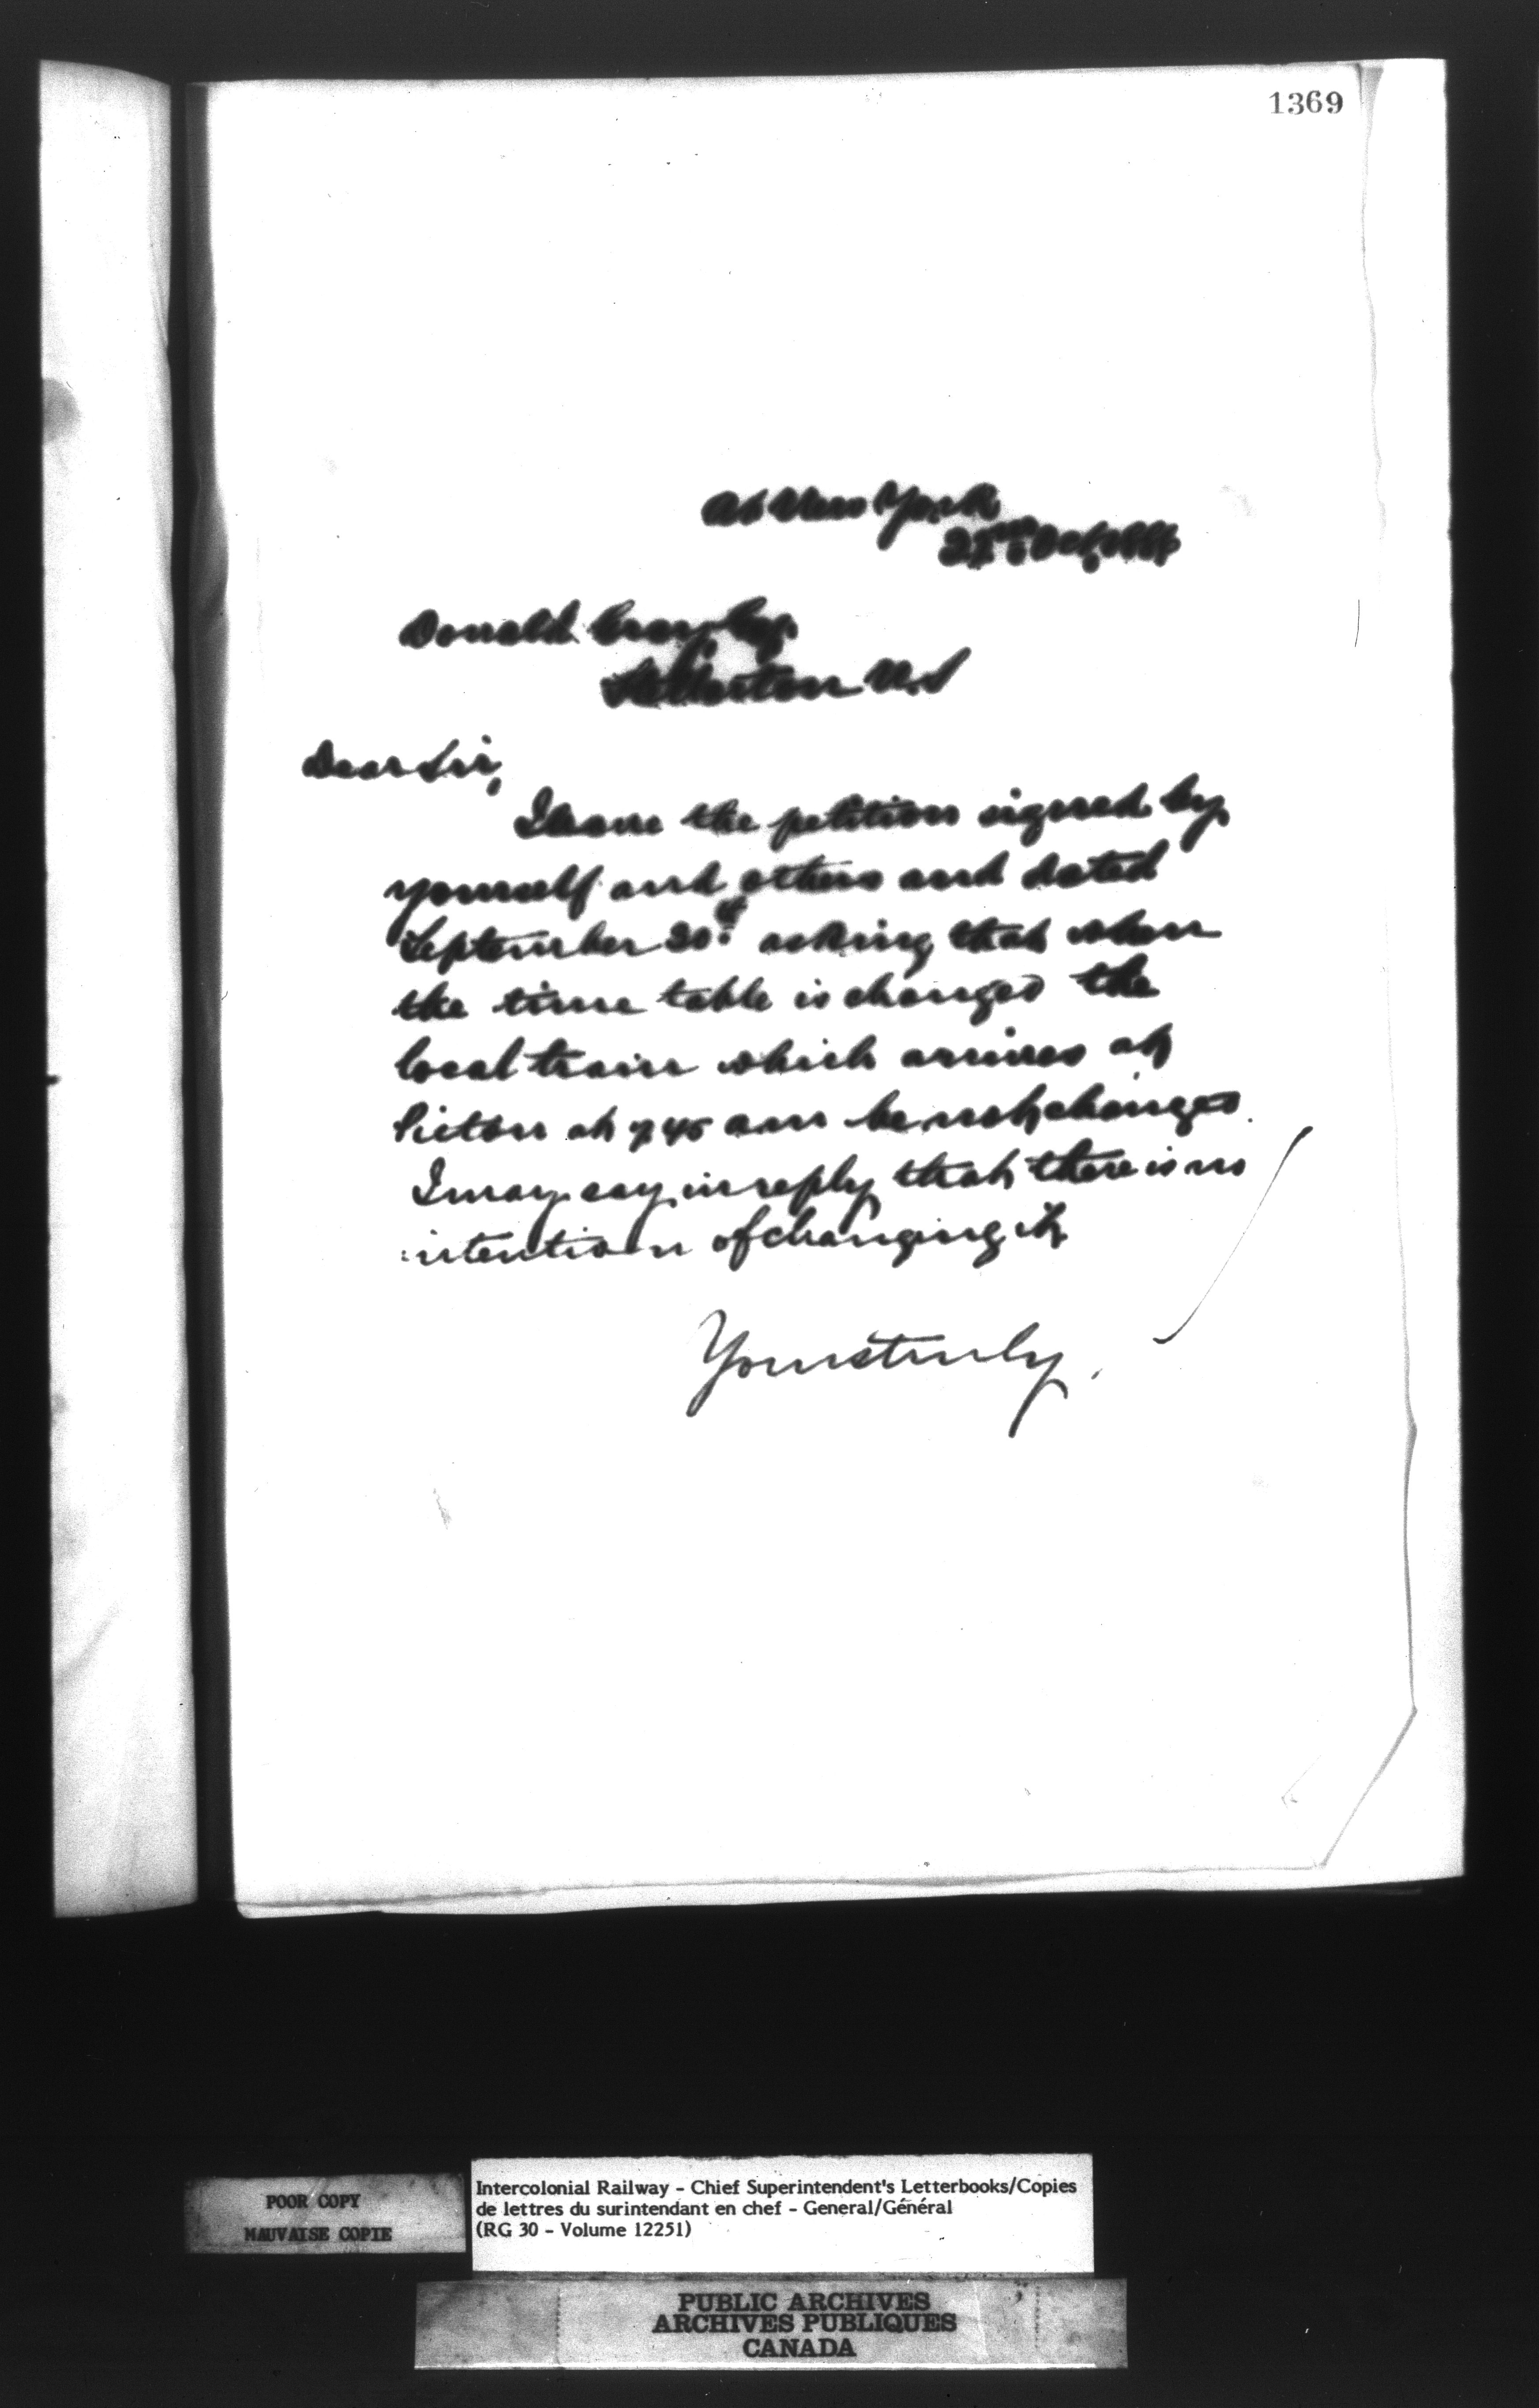 1369
At New York
22nd Oct
Donald
Stellarton N.S
Dear Sir,
I have the petition signed by
yourself and others and dated
September 30th asking that when
the time table is changed the
local train which arrives at
Pictou at 7 45 am be not changed.
I may say in reply that there is no
intention of changing it
Yours truly,
POOR COPY
MAUVAISE COPIE
Intercolonial Railway - Chief Superintendent's Letterbooks/Copies
de lettres du surintendant en chef - General/Général
(RG 30 - Volume 12251)
PUBLIC ARCHIVES
ARCHIVES PUBLIQUES
CANADA